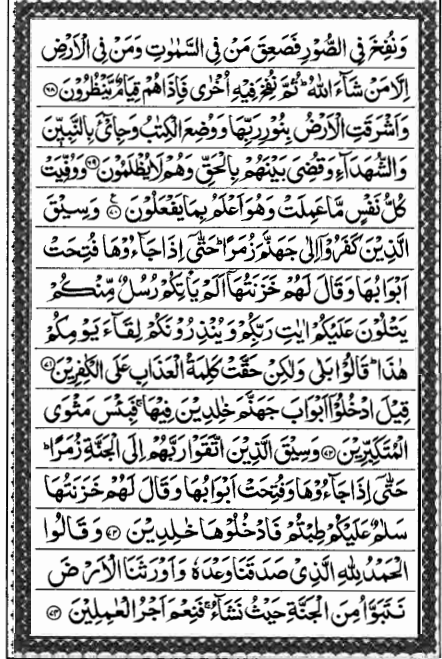 وَنُفِخَ فِي الصُّوۡرِ فَصَعِقَ مَنۡ فِي السَّمٰوٰتِ وَمَنۡ فِي الۡاَرۡضِ
اِلَّا مَنۡ شَآءَ اللّٰهُ ؕ ثُمَّ نُفِخَ فِيۡهِ اُخۡرٰى فَاِذَا هُمۡ قِيَامٌ يَّنۡظُرُوۡنَ ﴿۶۸﴾
وَاَشۡرَقَتِ الۡاَرۡضُ بِنُوۡرِ رَبِّهَا وَوُضِعَ الۡكِتٰبُ وَجِآىۡءَ بِالنَّبِيّٖنَ
وَالشُّهَدَآءِ وَقُضِىَ بَيۡنَهُمۡ بِالۡحَقِّ وَهُمۡ لَا يُظۡلَمُوۡنَ ﴿۶۹﴾ وَوُفِّيَتۡ
كُلُّ نَفۡسٍ مَّا عَمِلَتۡ وَهُوَ اَعۡلَمُ بِمَا يَفۡعَلُوۡنَ ﴿۷۰﴾ ع وَسِيۡقَ
الَّذِيۡنَ كَفَرُوۡۤا اِلٰى جَهَنَّمَ زُمَرًا ؕ حَتّٰٓى اِذَا جَآءُوۡهَا فُتِحَتۡ
اَبۡوَابُهَا وَقَالَ لَهُمۡ خَزَنَتُهَاۤ اَلَمۡ يَاۡتِكُمۡ رُسُلٌ مِّنۡكُمۡ
يَتۡلُوۡنَ عَلَيۡكُمۡ اٰيٰتِ رَبِّكُمۡ وَيُنۡذِرُوۡنَكُمۡ لِقَآءَ يَوۡمِكُمۡ
هٰذَا ؕ قَالُوۡا بَلٰى وَلٰكِنۡ حَقَّتۡ كَلِمَةُ الۡعَذَابِ عَلَى الۡكٰفِرِيۡنَ ﴿۷۱﴾
قِيۡلَ ادۡخُلُوۡۤا اَبۡوَابَ جَهَنَّمَ خٰلِدِيۡنَ فِيۡهَا ۚ فَبِئۡسَ مَثۡوَى
الۡمُتَكَبِّرِيۡنَ ﴿۷۲﴾ وَسِيۡقَ الَّذِيۡنَ اتَّقَوۡا رَبَّهُمۡ اِلَى الۡجَنَّةِ زُمَرًا ؕ
حَتّٰٓى اِذَا جَآءُوۡهَا وَفُتِحَتۡ اَبۡوَابُهَا وَقَالَ لَهُمۡ خَزَنَتُهَا
سَلٰمٌ عَلَيۡكُمۡ طِبۡتُمۡ فَادۡخُلُوۡهَا خٰلِدِيۡنَ ﴿۷۳﴾ وَقَالُوا
الۡحَمۡدُ لِلّٰهِ الَّذِىۡ صَدَقَنَا وَعۡدَهٗ وَاَوۡرَثَنَا الۡاَرۡضَ
نَتَبَوَّاُ مِنَ الۡجَنَّةِ حَيۡثُ نَشَآءُ ۚ فَنِعۡمَ اَجۡرُ الۡعٰمِلِيۡنَ ﴿۷۴﴾